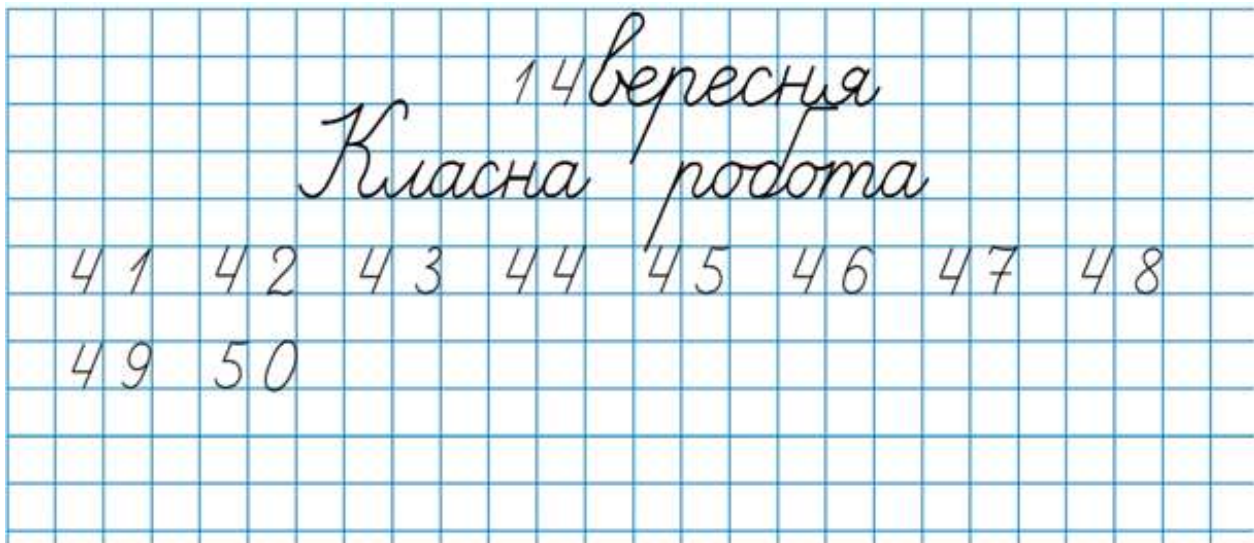 14 вересня
Класна робота
41 42 43 44 45 46 47 48
49 50